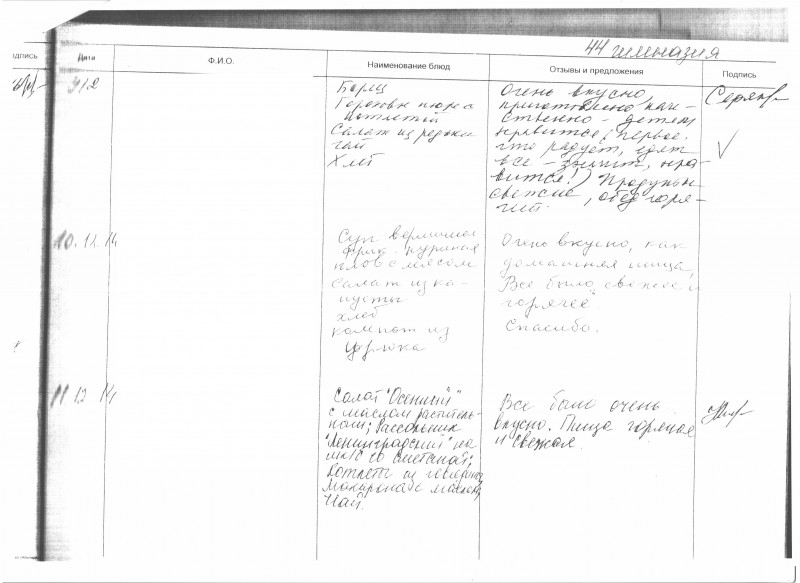 44 гимназия
дпись
Дата
Ф.И.О.
Наименование блюд
Отзывы и предложения
Подпись
9/12
Борщ
Гороховое пюре с
котлетой
Салат из редьки
чай
Хлеб
Очень вкусно,
приготовлено каче-
ственно - детям
нравится (первое.
что радует, едят
все - значит, нра-
вится!) Продукты
свежие, обед горя-
чий.
10.12.14
Суп вермишел
фрик. куриная
плов с мясом
Салат из ка-
пусты
хлеб
компот из
урюка
Очень вкусно, как
домашняя пища,
Все было свежее и
горячее
Спасибо.
11 12 14
Салат "Осенний"
с маслом раститель-
ным; Рассольник
"Ленинградский" на
со сметаной;
Котлеты из говядины
Макароны с маслом,
Чай.
Все было очень
вкусно. Пища горячая
и свежая